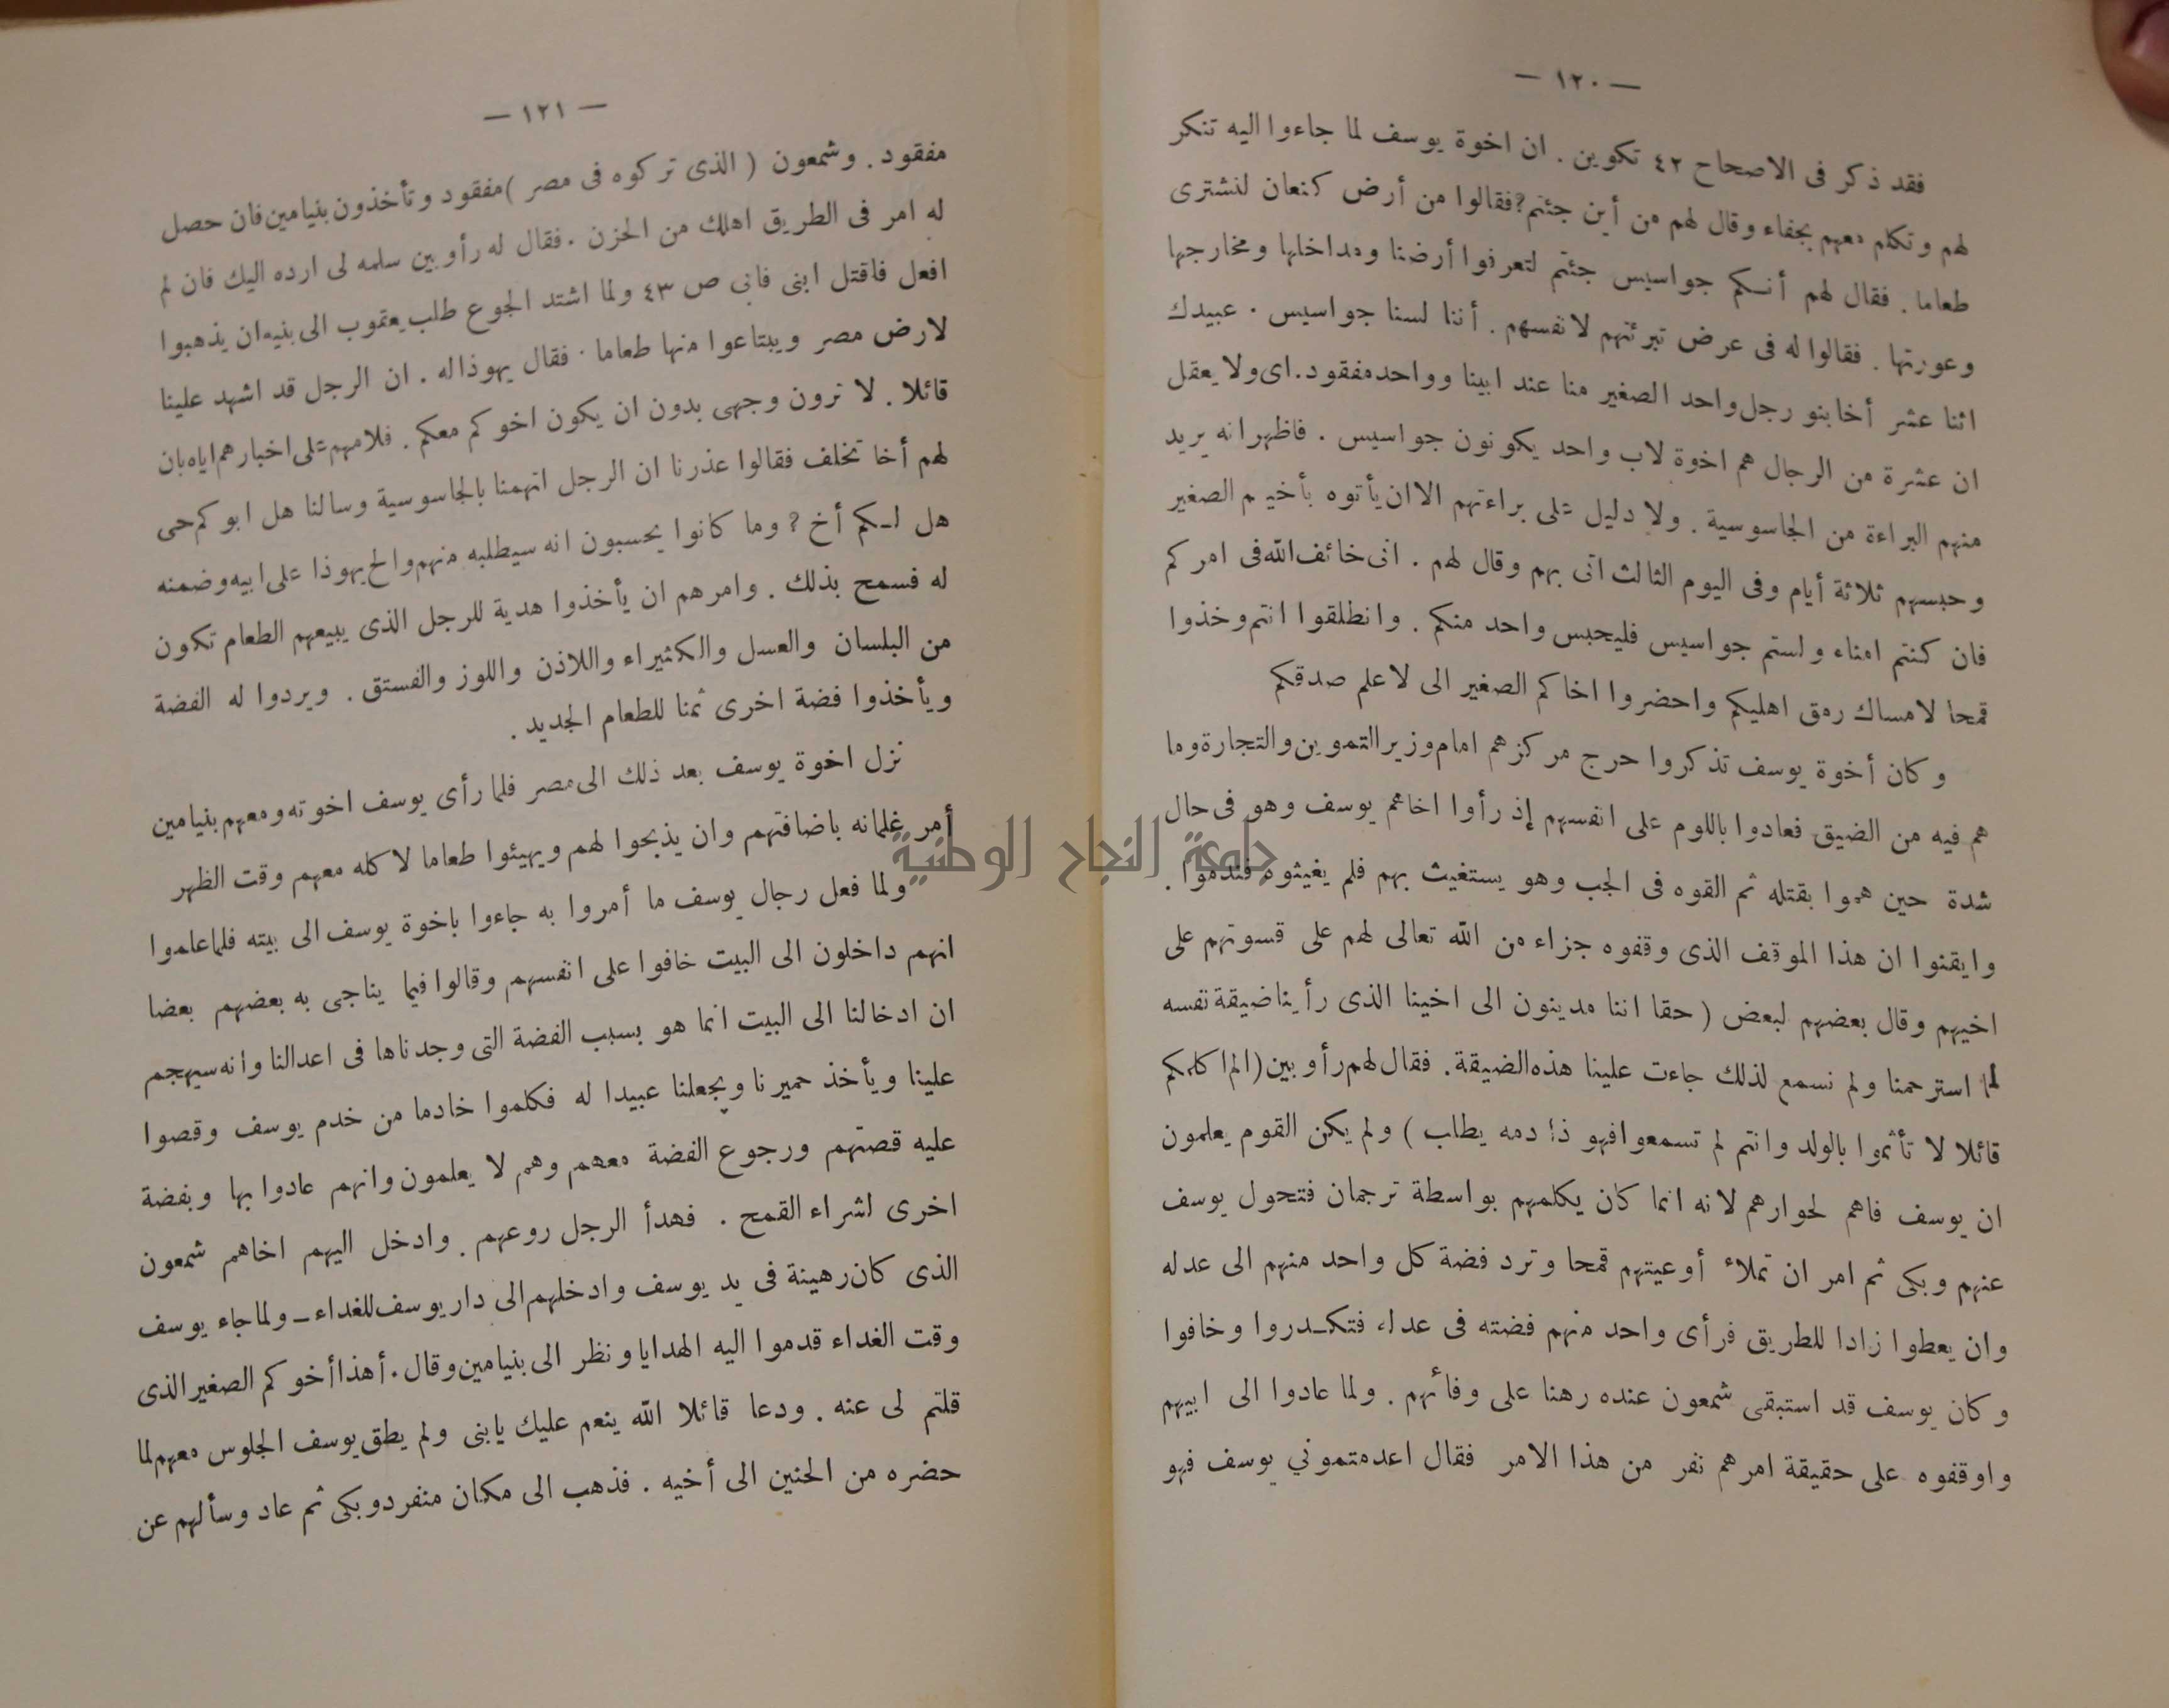 — ١٢٠ —
فقد ذكر فى الاصحاح ٤٢ تكوين . ان اخوة يوسف لما جاءوا اليه تنكر
لهم وتكلم معهم بجفاء وقال لهم من أين جئتم؟ فقالوا من أرض كنعان لنشترى
طعاما . فقال لهم أنكم جواسيس جئتم لتعرفوا أرضنا ومداخلها ومخارجها
وعورتها . فقالوا له فى عرض تبرئتهم لانفسهم . أننا لسنا جواسيس . عبيدك
اثنا عشر أخا بنو رجل واحد الصغير منا عند ابينا وواحد مفقود . اى ولا يعقل
ان عشرة من الرجال هم اخوة لاب واحد يكونون جواسيس . فاظهر انه يريد
منهم البراءة من الجاسوسية . ولا دليل على براءتهم الا ان يأتوه بأخيهم الصغير
وحبسهم ثلاثة أيام وفى اليوم الثالث اتى بهم وقال لهم . انى خائف الله فى امركم
فان كنتم امناء ولستم جواسيس فليحبس واحد منكم . وانطلقوا انتم وخذوا
قمحا لامساك رمق اهليكم واحضروا اخاكم الصغير الى لاعلم صدقكم
وكان أخوة يوسف تذكروا حرج مركزهم امام وزير التموين والتجارة وما
هم فيه من الضيق فعادوا باللوم على انفسهم إذ رأوا اخاهم يوسف وهو فى حال
شدة حين هموا بقتله ثم القوه فى الجب وهو يستغيث بهم فلم يغيثوه فندموا .
وايقنوا ان هذا الموقف الذى وقفوه جزاء من الله تعالى لهم على قسوتهم على
اخيهم وقال بعضهم لبعض ( حقا اننا مدينون الى اخينا الذى رأينا ضيقة نفسه
لما استرحمنا ولم نسمع لذلك جاءت علينا هذه الضيقة . فقال لهم رأوبين ( الم اكلمكم
قائلا لا تأثموا بالولد وانتم لم تسمعوا فهو ذا دمه يطلب ) ولم يكن القوم يعلمون
ان يوسف فاهم لحوارهم لانه انما كان يكلمهم بواسطة ترجمان فتحول يوسف
عنهم وبكى ثم امر ان تملاء أوعيتهم قمحا وترد فضة كل واحد منهم الى عدله
وان يعطوا زادا للطريق فرأى واحد منهم فضته فى عدله فتكدروا وخافوا
وكان يوسف قد استبقى شمعون عنده رهنا على وفائهم . ولما عادوا الى ابيهم
واوقفوه على حقيقة امرهم نفر من هذا الامر فقال اعدمتموني يوسف فهو
— ١٢١ —
مفقود . وشمعون ( الذى تركوه فى مصر ) مفقود وتأخذون بنيامين فان حصل
له امر فى الطريق اهلك من الحزن . فقال له رأوبين سلمه لى ارده اليك فان لم
افعل فاقتل ابنى فانى ص ٤٣ ولما اشتد الجوع طلب يعقوب الى بنيه ان يذهبوا
لارض مصر ويبتاعوا منها طعاما . فقال يهوذا له . ان الرجل قد اشهد علينا
قائلا . لا ترون وجهى بدون ان يكون اخوكم معكم . فلامهم على اخبارهم اياه بان
لهم أخا تخلف فقالوا عذرنا ان الرجل اتهمنا بالجاسوسية وسالنا هل ابوكم حى
هل لكم أخ ؟ وما كانوا يحسبون انه سيطلبه منهم والح يهوذا على ابيه وضمنه
له فسمح بذلك . وامرهم ان يأخذوا هدية للرجل الذى يبيعهم الطعام تكون
من البلسان والعسل والكثيراء واللاذن واللوز والفستق . ويردوا له الفضة
ويأخذوا فضة اخرى ثمنا للطعام الجديد .
نزل اخوة يوسف بعد ذلك الى مصر فلما رأى يوسف اخوته ومعهم بنيامين
أمر غلمانه باضافتهم وان يذبحوا لهم ويهيئوا طعاما لاكله معهم وقت الظهر
ولما فعل رجال يوسف ما أمروا به جاءوا باخوة يوسف الى بيته فلما علموا
انهم داخلون الى البيت خافوا على انفسهم وقالوا فيما يناجى به بعضهم بعضا
ان ادخالنا الى البيت انما هو بسبب الفضة التى وجدناها فى اعدالنا وانه سيهجم
علينا ويأخذ حميرنا ويجعلنا عبيدا له فكلموا خادما من خدم يوسف وقصوا
عليه قصتهم ورجوع الفضة معهم وهم لا يعلمون وانهم عادوا بها وبفضة
اخرى لشراء القمح . فهدأ الرجل روعهم . وادخل اليهم اخاهم شمعون
الذى كان رهينة فى يد يوسف وادخلهم الى دار يوسف للغداء ـ ولما جاء يوسف
وقت الغداء قدموا اليه الهدايا ونظر الى بنيامين وقال . أهذا أخوكم الصغير الذى
قلتم لى عنه . ودعا قائلا الله ينعم عليك يابنى ولم يطق يوسف الجلوس معهم لما
حضره من الحنين الى أخيه . فذهب الى مكان منفرد وبكى ثم عاد وسألهم عن
جامعة النجاح الوطنية